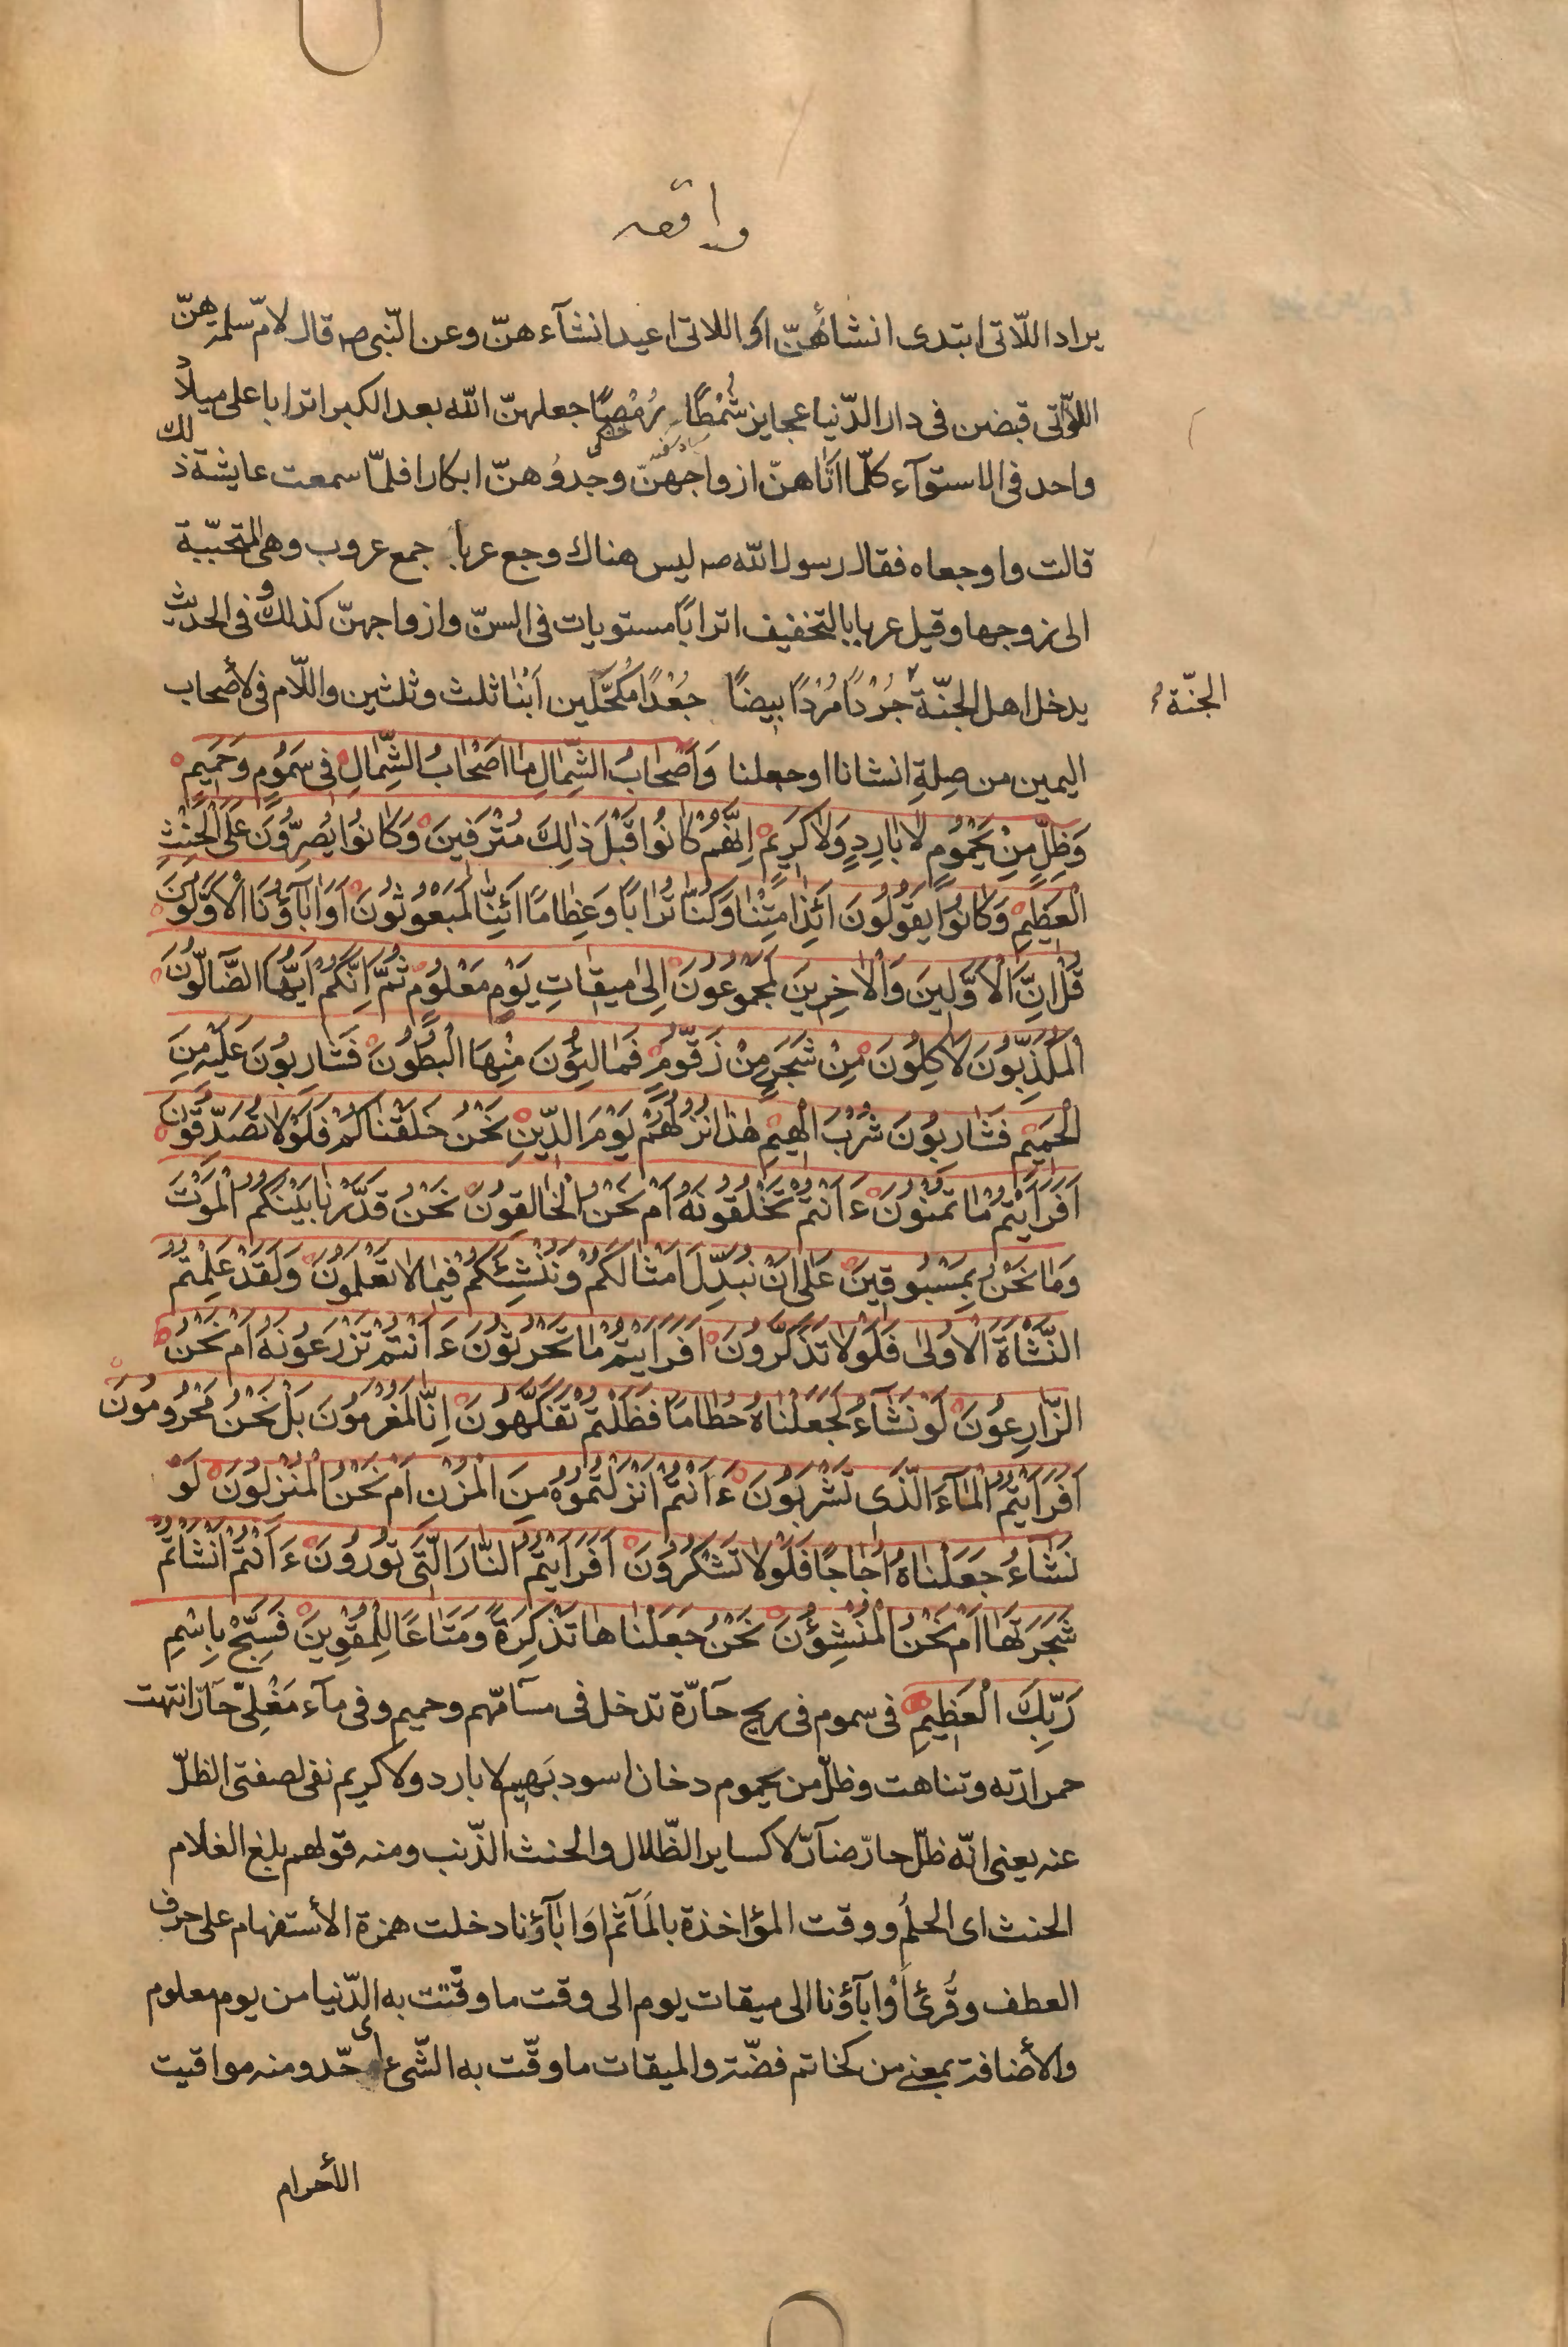 واقعه
يراد اللّاتى ابتدى انشاءُهنّ او اللاتى اعيد انشآءهنّ وعن النّبى صه قال لامّ سلمة هنّ
اللوّاتى قبضن فى دار الدّنيا عجايز شُمْطًا رُمْصًا جعلهنّ الله بعد الكبر اترابا على ميلاد
واحد فى الاستوآء كلّما اتاهنّ ازواجهنّ وجدوُهنّ ابكارا فلمّا سمعت عايشة ذلك
قالت واوجعاه فقال رسول الله صه ليس هناك وجع عربا جمع عروب وهى المتحبّبة
الى زوجها وقيل عربا بالتخفيف اترابًا مستويات فى السنّ وازواجهنّ كذلك وفى الحديث
يدخل اهل الجنّة جُرْدًا مُرْدًا بيضًا جعْدًا مُكَحَّلين اَبْنا ثلث وثلثين واللّام فى لأصحاب
الجنّة
اليمين من صِلةِ انشانا او جعلنا وَاَصْحابُ الشِّمالِ ما اَصْحابُ الشِّمالِ فى سَمُومٍ وَحَميمٍ
وَظِلٍّ مِنْ يَحْمُومٍ لا بارِدٍ وَلا كَريمٍ اِنَّهُمْ كانُوا قَبْلَ ذلِكَ مُتْرَفينَ وَكانُوا يُصِرُّونَ عَلَى الْحِنْثِ
الْعَظيمِ وَكانُوا يَقُولُونَ اَئِذا مِتْنا وَكُنّا تُرابًا وَعِظامًا اَئِنّا لَمَبْعُوثُونَ اَوَآباؤُنَا الْاَوَّلُونَ
قُلْ اِنَّ الْاَوَّلينَ وَالْاخِرينَ لَمَجْمُوعُونَ اِلى ميقاتِ يَوْمٍ مَعْلُومٍ ثُمَّ اِنَّكُمْ اَيُّهَا الضّالُّونَ
الْمُكَذِّبُونَ لَآكِلُونَ مِنْ شَجَرٍ مِنْ زَقُّومٍ فَمالِئُونَ مِنْهَا الْبُطُونَ فَشارِبُونَ عَلَيْهِ مِنَ
الْحَميمِ فَشارِبُونَ شُرْبَ الْهيمِ هذا نُزُلُهُمْ يَوْمَ الدّينِ نَحْنُ خَلَقْناكُمْ فَلَوْلا تُصَدِّقُونَ
اَفَرَاَيْتُمْ ما تُمْنُونَ ءَاَنْتُمْ تَخْلُقُونَهُ اَمْ نَحْنُ الْخالِقُونَ نَحْنُ قَدَّرْنا بَيْنَكُمُ الْمَوْتَ
وَما نَحْنُ بِمَسْبُوقينَ عَلى اَنْ نُبَدِّلَ اَمْثالَكُمْ وَنُنْشِئَكُمْ فيما لا تَعْلَمُونَ وَلَقَدْ عَلِمْتُمُ
النَّشْاَةَ الْاُولى فَلَوْلا تَذَكَّرُونَ اَفَرَاَيْتُمْ ما تَحْرُثُونَ ءَاَنْتُمْ تَزْرَعُونَهُ اَمْ نَحْنُ
الزّارِعُونَ لَوْ نَشآءُ لَجَعَلْناهُ حُطامًا فَظَلْتُمْ تَفَكَّهُونَ اِنّا لَمُغْرَمُونَ بَلْ نَحْنُ مَحْرُومُونَ
اَفَرَاَيْتُمُ الْمآءَ الَّذى تَشْرَبُونَ ءَاَنْتُمْ اَنْزَلْتُمُوهُ مِنَ الْمُزْنِ اَمْ نَحْنُ الْمُنْزِلُونَ لَوْ
نَشآءُ جَعَلْناهُ اُجاجًا فَلَوْلا تَشْكُرُونَ اَفَرَاَيْتُمُ النّارَ الَّتى تُورُونَ ءَاَنْتُمْ اَنْشَاْتُمْ
شَجَرَتَها اَمْ نَحْنُ الْمُنْشِؤُنَ نَحْنُ جَعَلْناها تَذْكِرَةً وَمَتاعًا لِلْمُقْوينَ فَسَبِّحْ بِاسْمِ
رَبِّكَ الْعَظيمِ فى سموم فى ريح حآرّة تدخل فى مسآمّهم وحميم وفى مآء مَغْلِىّ حآرّ انتهت
حرارته وتناهت وظلّ من يحموم دخان اسود بَهيم لا بارد ولا كريم نفى لصفتى الظلّ
عنه يعنى انّه ظلّ حارّ ضآرّ لا كساير الظّلال والحنث الذّنب ومنه قولهم بلغ الغلام
الحنث اى الحلُم ووقت المؤاخذة بالمَآثم اوَابآؤنا دخلت همزة الأستفهام على حرف
العطف وقُرئ اَوْابآؤنا الى ميقات يوم الى وقت ما وقّتت به الدّنيا من يوم معلوم
والأضافة بمعنى من كخاتم فضّة والميقات ما وقّت به الشّىء اى حّد ومنه مواقيت
الأحرام